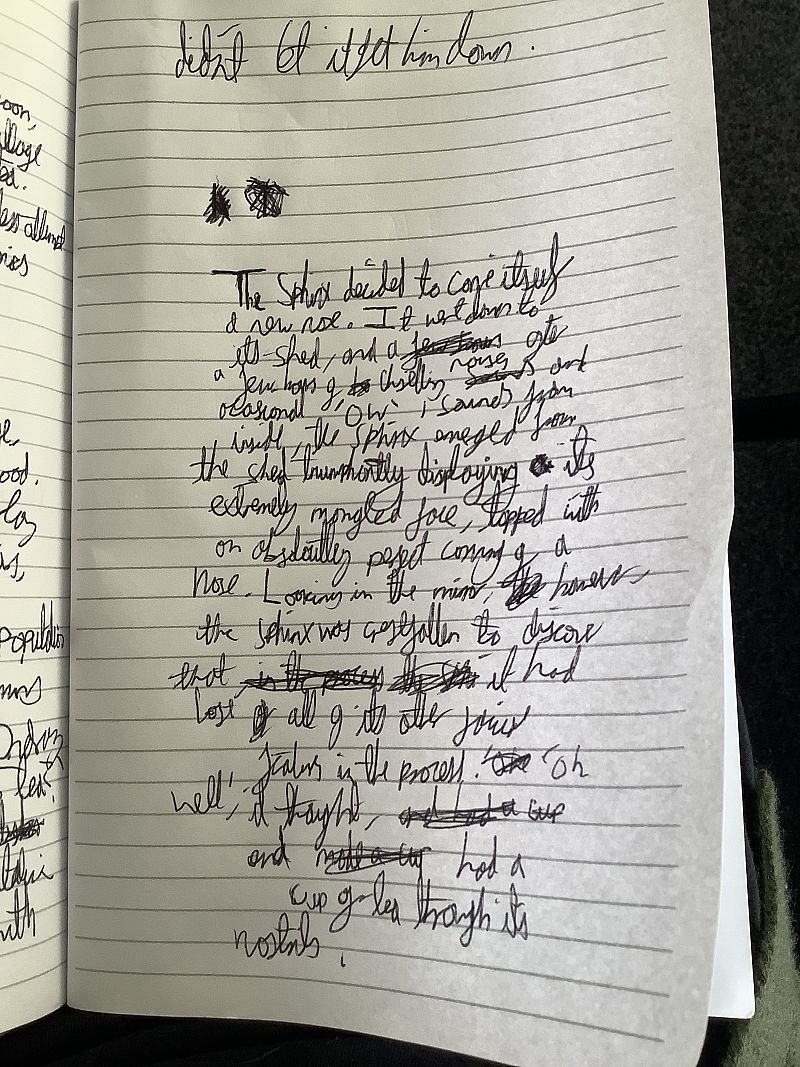 didn't let it get him down.
oon,
llage
ea.
less
The Sphinx decided to carve itself
a new nose. It went down to
its shed, and a after
a few hours of chiselling noises and
ocasional 'OW' sounds from
inside, the Sphinx emerged from
the shed triumphantly displaying its
extremely mangled face, topped with
an absolutely perfect carving of a
nose. Looking in the mirror, however,
the sphinx was crestfallen to discover
that it had
lost all of its other facial
features in the process. 'Oh
well', it thought,
and had a
cup of tea through its
nostrils.
ood.
Population
with